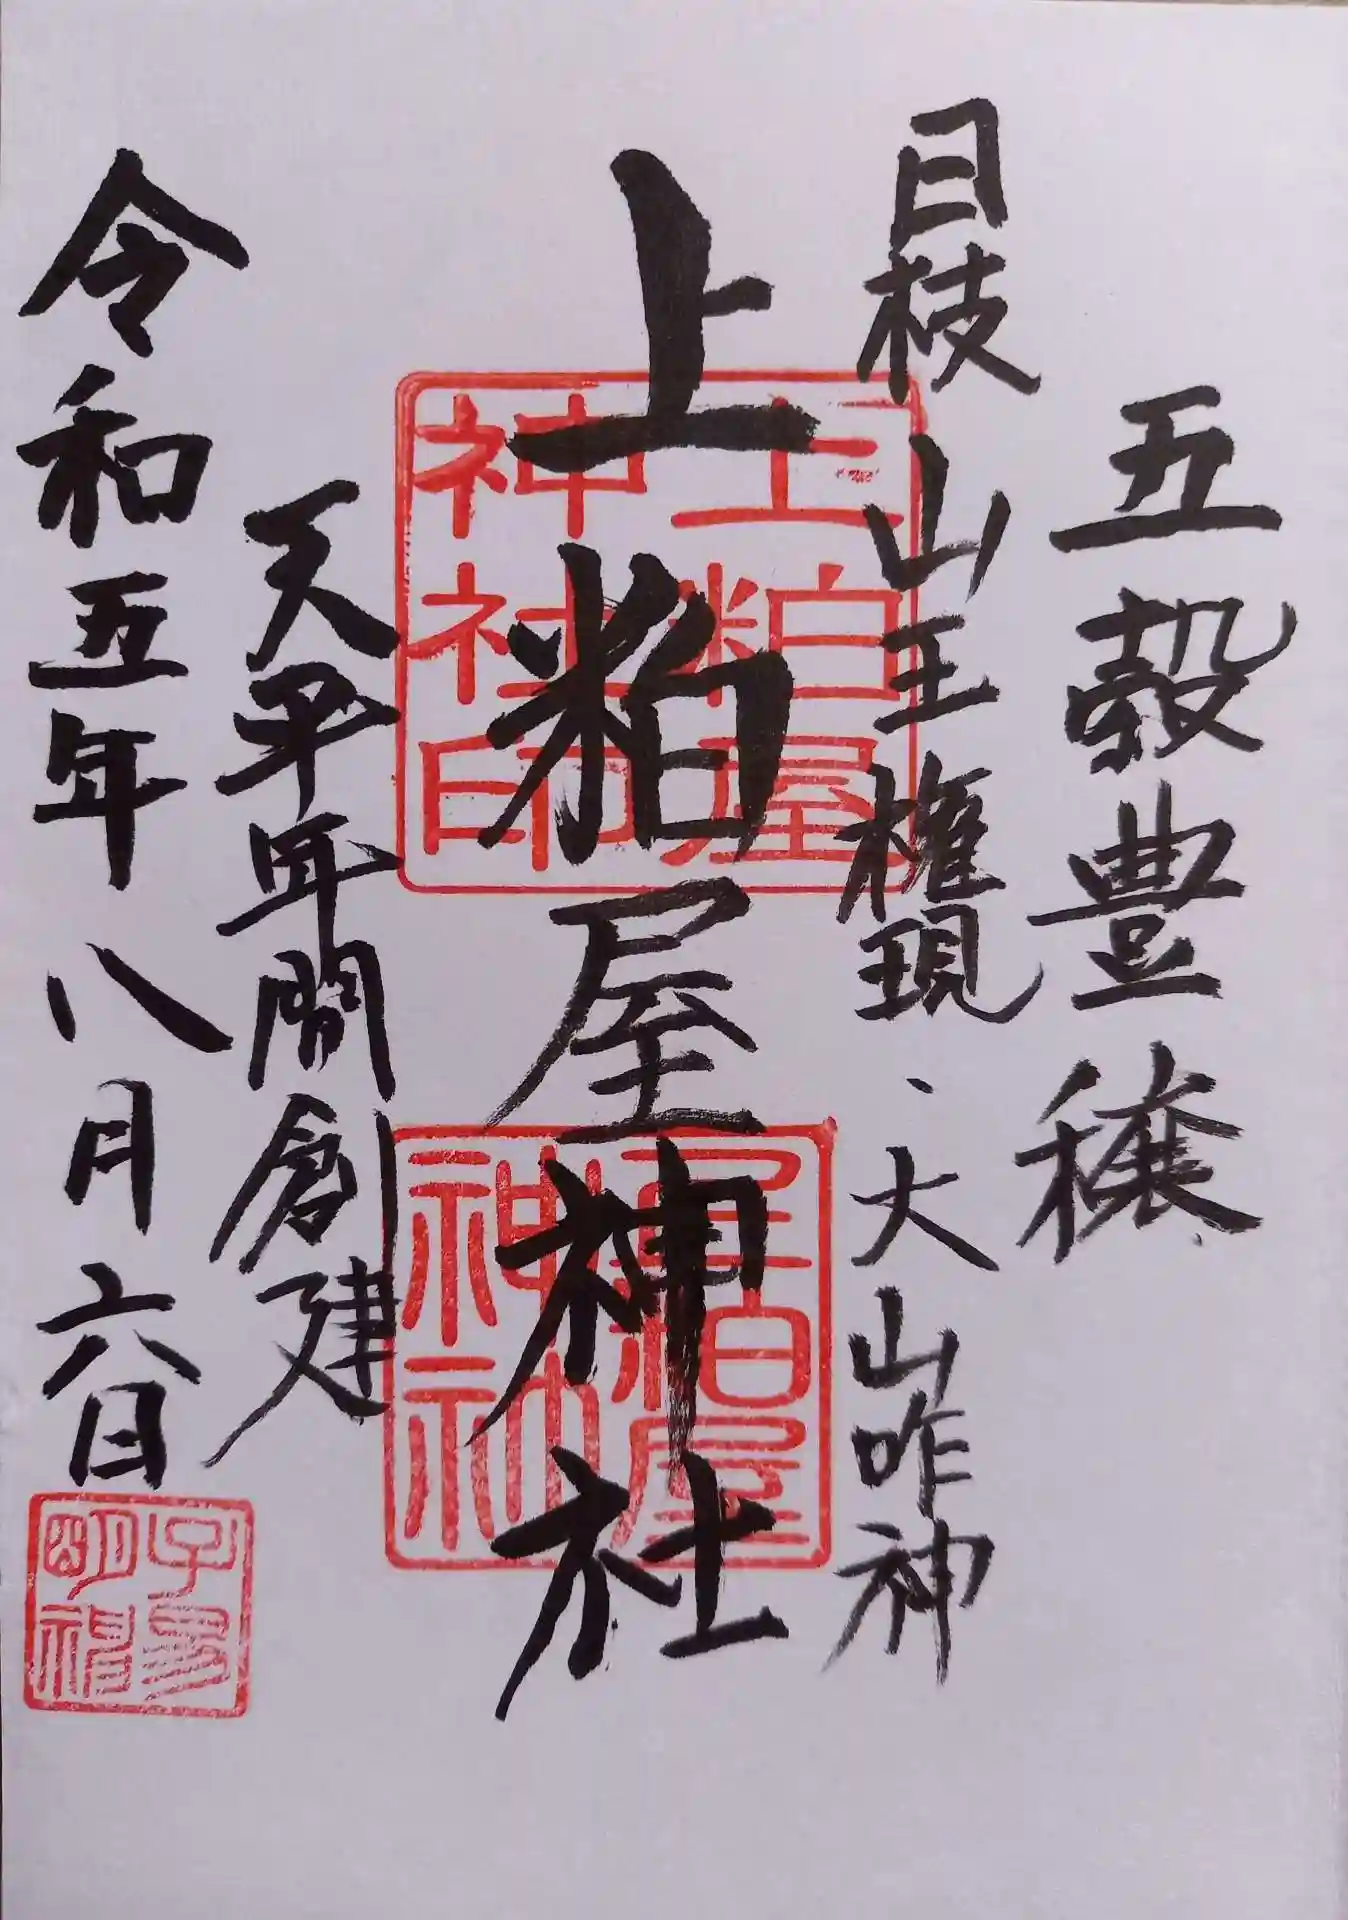 五穀豊穣
日枝山王権現、大山咋神
上粕屋神社
天平年間創建
令和五年八月六日
上粕屋
神社印
粕屋
神社
子易
明神